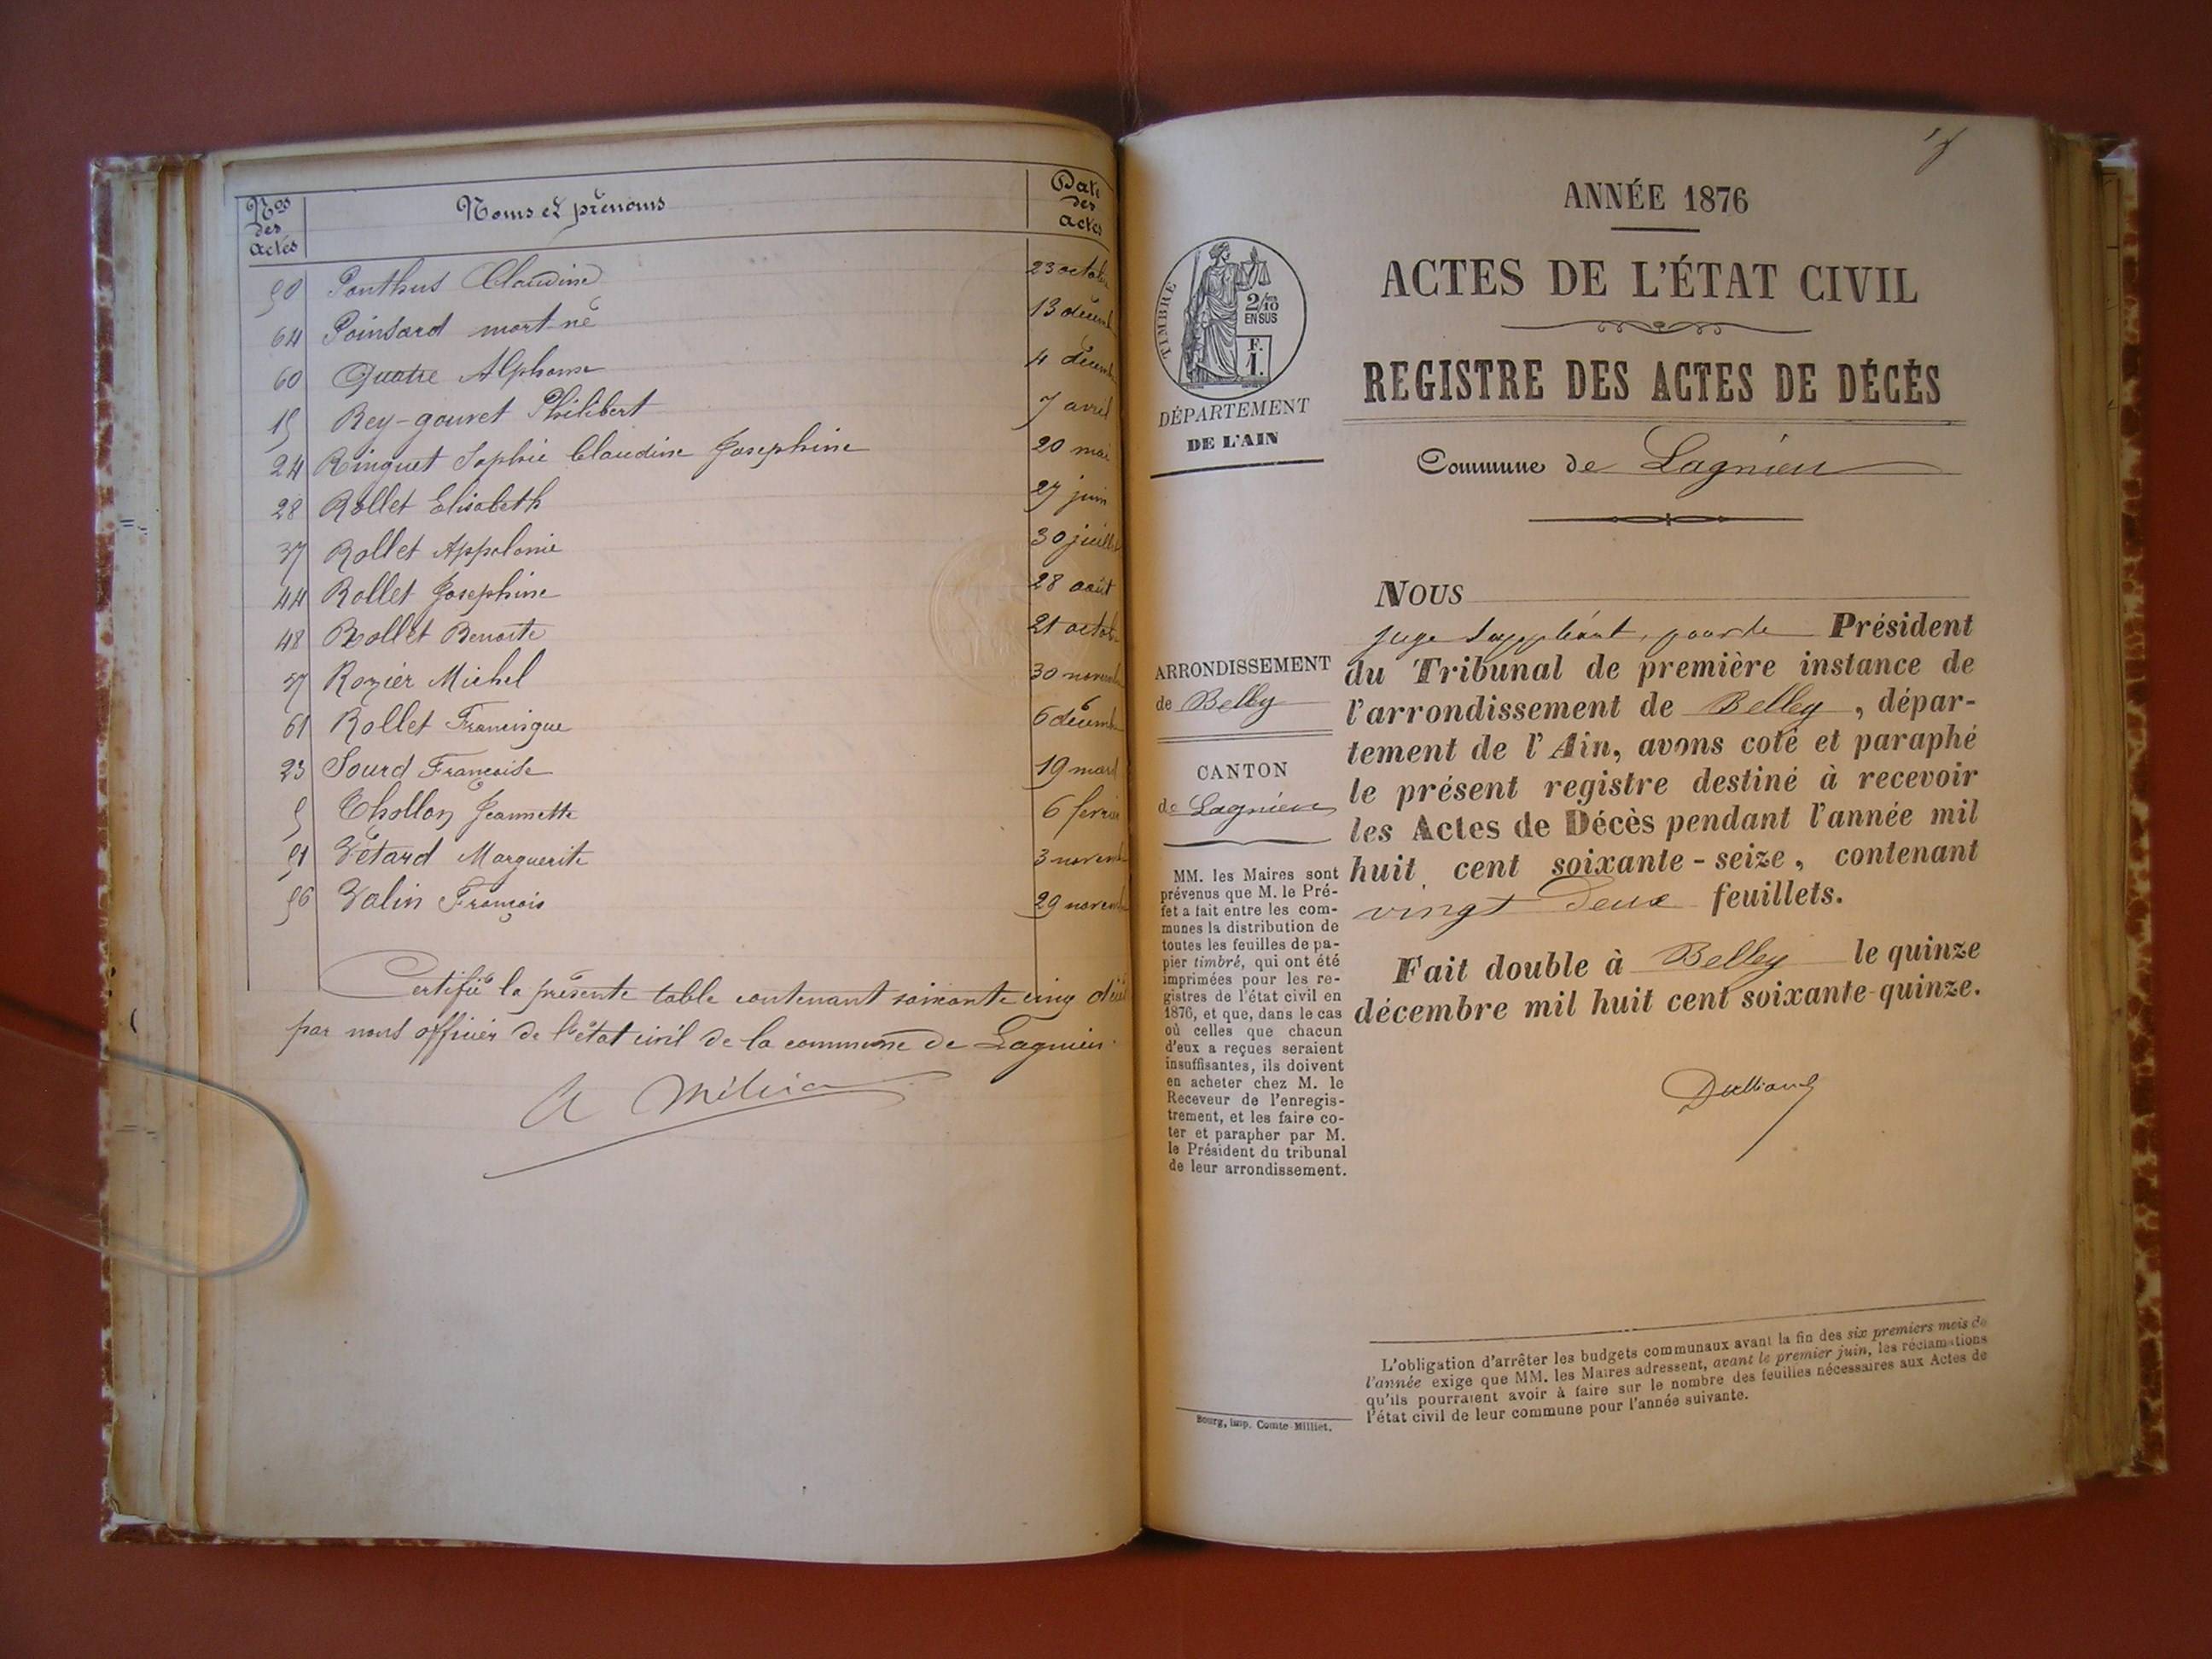 Nos des actes | Noms et prénoms | Date des actes
50 Ponthus Claudine 23 octob
64 Poinsard mort-né 13 décemb
60 Quatre Alphonse 4 décemb
15 Rey-gouvet Philibert 7 avril
24 Ringuet Sophie Claudine Josephine 20 mai
28 Rollet Elisabeth 27 juin
37 Rollet Appolonie 30 juillet
44 Rollet Josephine 28 août
48 Rollet Benoite 21 octob
57 Rozier Michel 30 novemb
61 Rollet Francisque 6 décemb
23 Sourd Francoise 19 mars
5 Thollon Jeannette 6 fevrier
51 Vétard Marguerite 3 novemb
56 Valin François 29 novemb
Certifié la présente table contenant soixante cinq
par nous officier de l'état civil de la commune de Lagnieu.
ANNÉE 1876
ACTES DE L'ÉTAT CIVIL
REGISTRE DES ACTES DE DÉCÈS
Commune de Lagnieu
TIMBRE
2/10
EN SUS
F.
1.
DÉPARTEMENT
DE L'AIN
ARRONDISSEMENT
de Belley
CANTON
de Lagnieu
MM. les Maires sont
prévenus que M. le Pré-
fet a fait entre les com-
munes la distribution de
toutes les feuilles de pa-
pier timbré, qui ont été
imprimées pour les re-
gistres de l'état civil en
1876, et que, dans le cas
où celles que chacun
d'eux a reçues seraient
insuffisantes, ils doivent
en acheter chez M. le
Receveur de l'enregis-
trement, et les faire co-
ter et parapher par M.
le Président du tribunal
de leur arrondissement.
NOUS
juge suppléant, pour le Président
du Tribunal de première instance de
l'arrondissement de Belley, dépar-
tement de l'Ain, avons coté et paraphé
le présent registre destiné à recevoir
les Actes de Décès pendant l'année mil
huit cent soixante-seize, contenant
vingt deux feuillets.
Fait double à Belley le quinze
décembre mil huit cent soixante-quinze.
L'obligation d'arrêter les budgets communaux avant la fin des six premiers mois de
l'année exige que MM. les Maires adressent, avant le premier juin, les réclamations
qu'ils pourraient avoir à faire sur le nombre des feuilles nécessaires aux Actes de
l'état civil de leur commune pour l'année suivante.
Bourg, imp. Comte-Milliet.